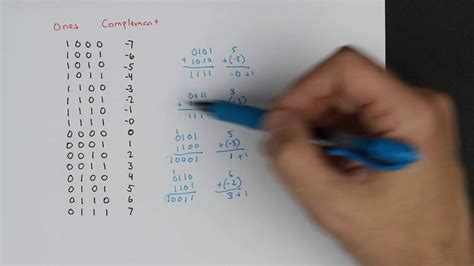 Ones Complement
1000 -7
1001 -6
1010 -5
1011 -4
1100 -3
1101 -2
1110 -1
1111 -0
0000 0
0001 1
0010 2
0011 3
0100 4
0101 5
0110 6
0111 7
0101 5
+1010 +(-5)
1111 -0+1
0011 3
+ (-3)
111
1
0101 5
1100 +(-3)
10001 1+1
1
0110 6
1101 +(-2)
10011 3+1